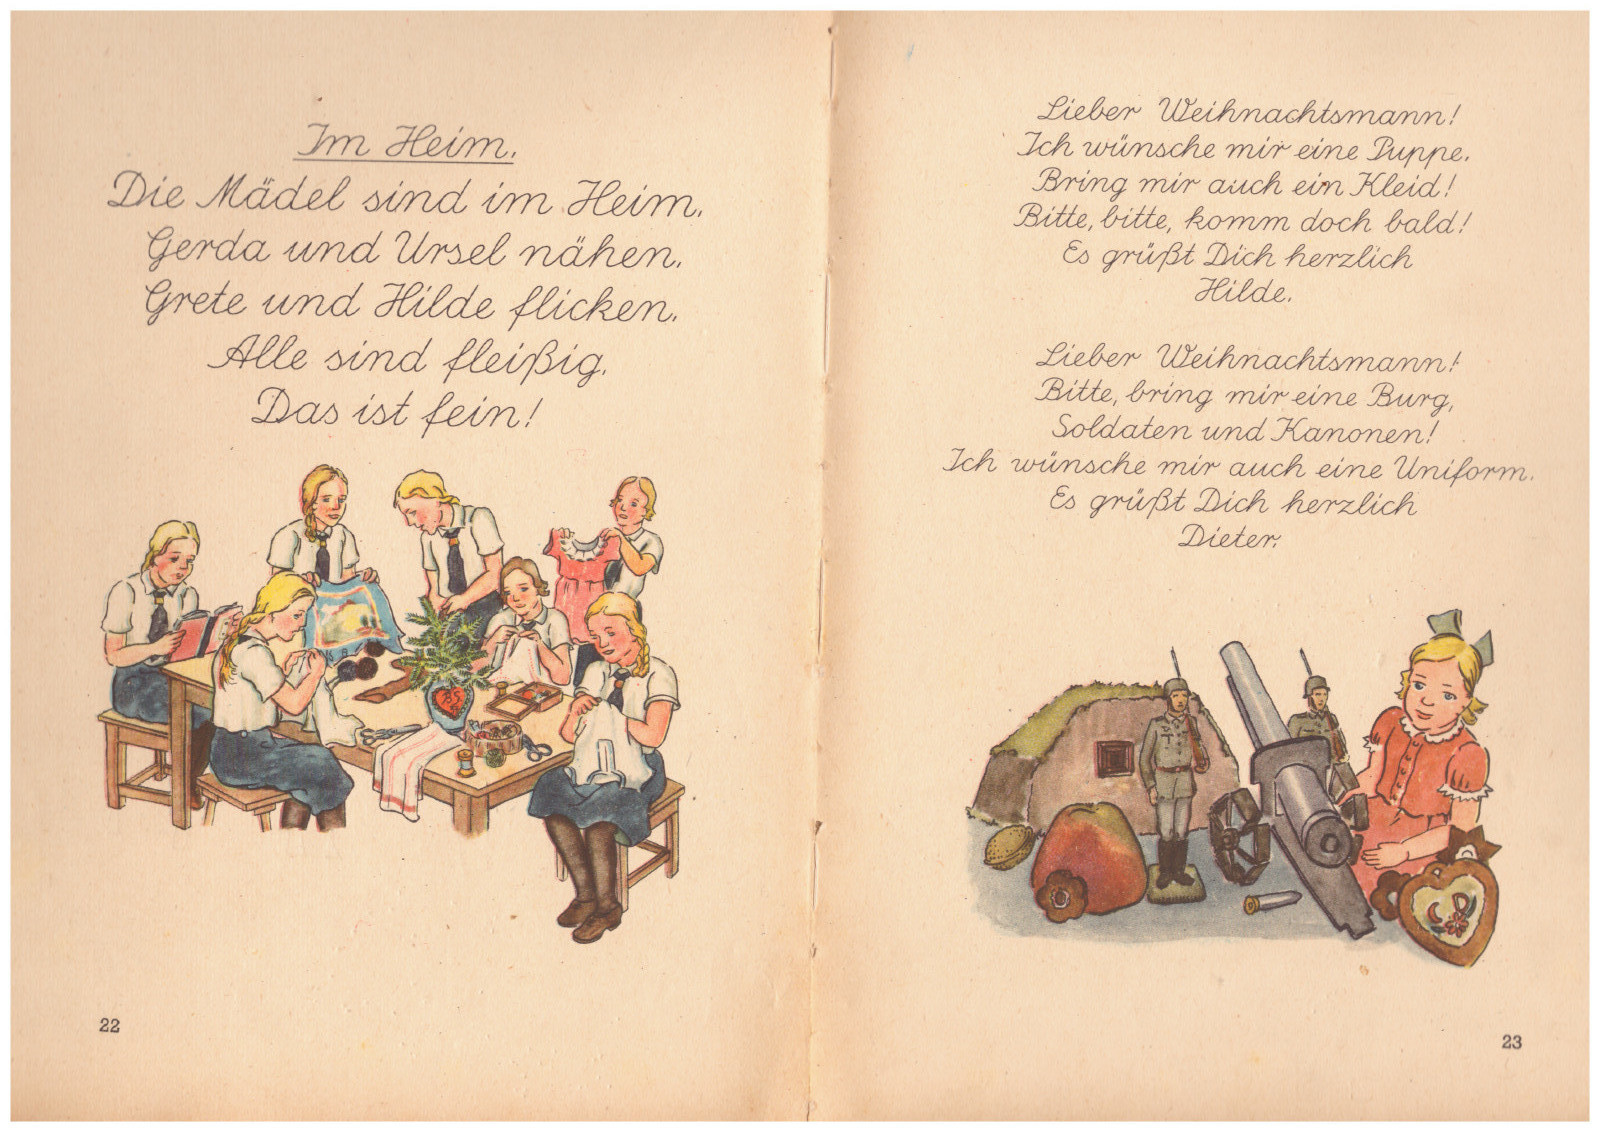 Im Heim.
Die Mädel sind im Heim.
Gerda und Ursel nähen.
Grete und Hilde flicken.
Alle sind fleißig.
Das ist fein!
22
Lieber Weihnachtsmann!
Ich wünsche mir eine Puppe.
Bring mir auch ein Kleid!
Bitte, bitte, komm doch bald!
Es grüßt Dich herzlich
Hilde.
Lieber Weihnachtsmann!
Bitte, bring mir eine Burg,
Soldaten und Kanonen!
Ich wünsche mir auch eine Uniform.
Es grüßt Dich herzlich
Dieter.
23